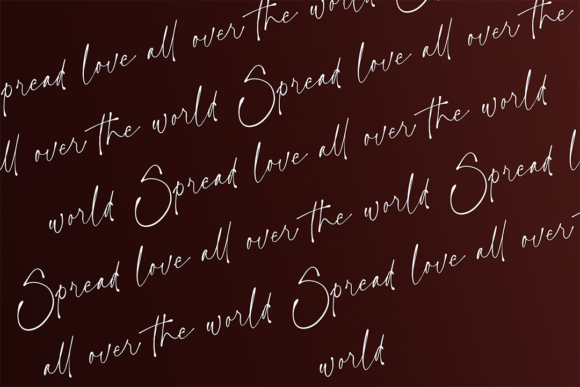 pread love all over the world S
ll over the world Spread love all over the
world Spread love all over the world
Spread love all over the world Spread l
all over the world Spread love all over
world